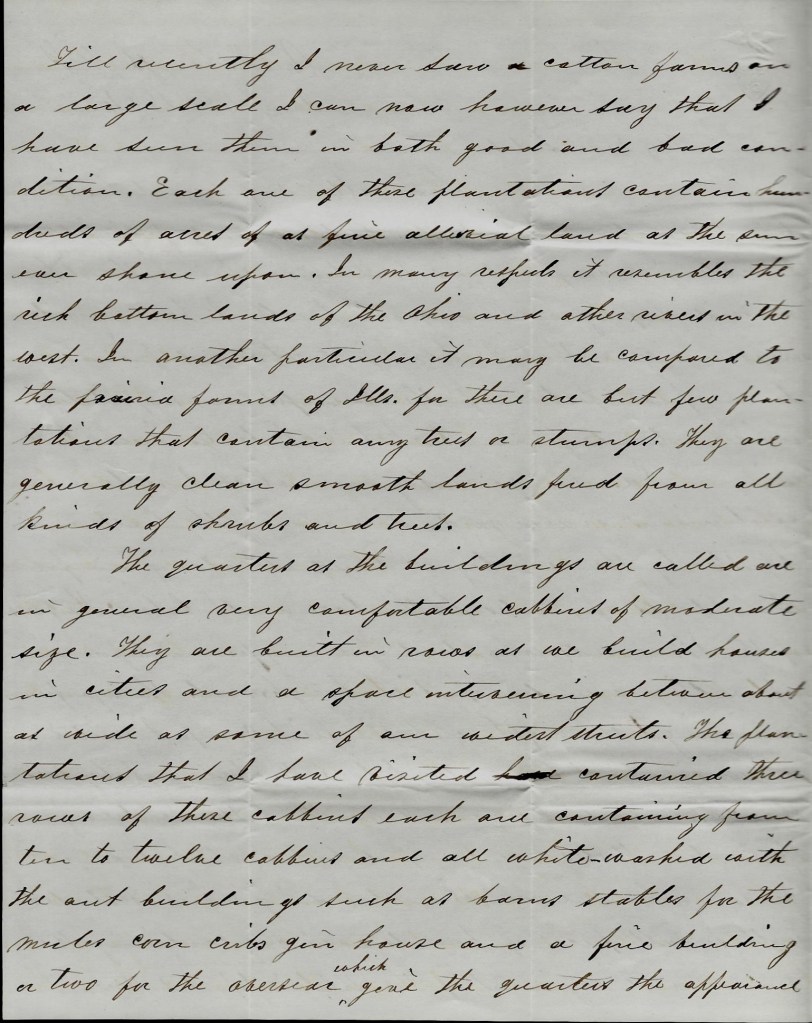 Till recently I never saw a cotton farms on
a large scale I can now however say that I
have seen them in both good and bad con-
dition. Each one of these plantations contain hun
dreds of acres of as fine alluvial land as the sun
ever shone upon. In many respects it resembles the
rich bottom lands of the Ohio and other rivers in the
west. In another particular it may be compared to
the prairie farms of Ills. for there are but few plan-
tations that contain any trees or stumps. They are
generally clean smooth lands free from all
kinds of shrubs and trees.
The quarters as the buildings are called are
in general very comfortable cabbins of moderate
size. They are built in rows as we build houses
in cities and a space intervening between about
as wide as some of our widest streets. The plan
tations that I have visited had contained three
rows of these cabbins each one containing from
ten to twelve cabbins and all white-washed with
the out buildings such as barns stables for the
mules corn cribs gin house and a fine building
or two for the overseer which give the quarters the appearance